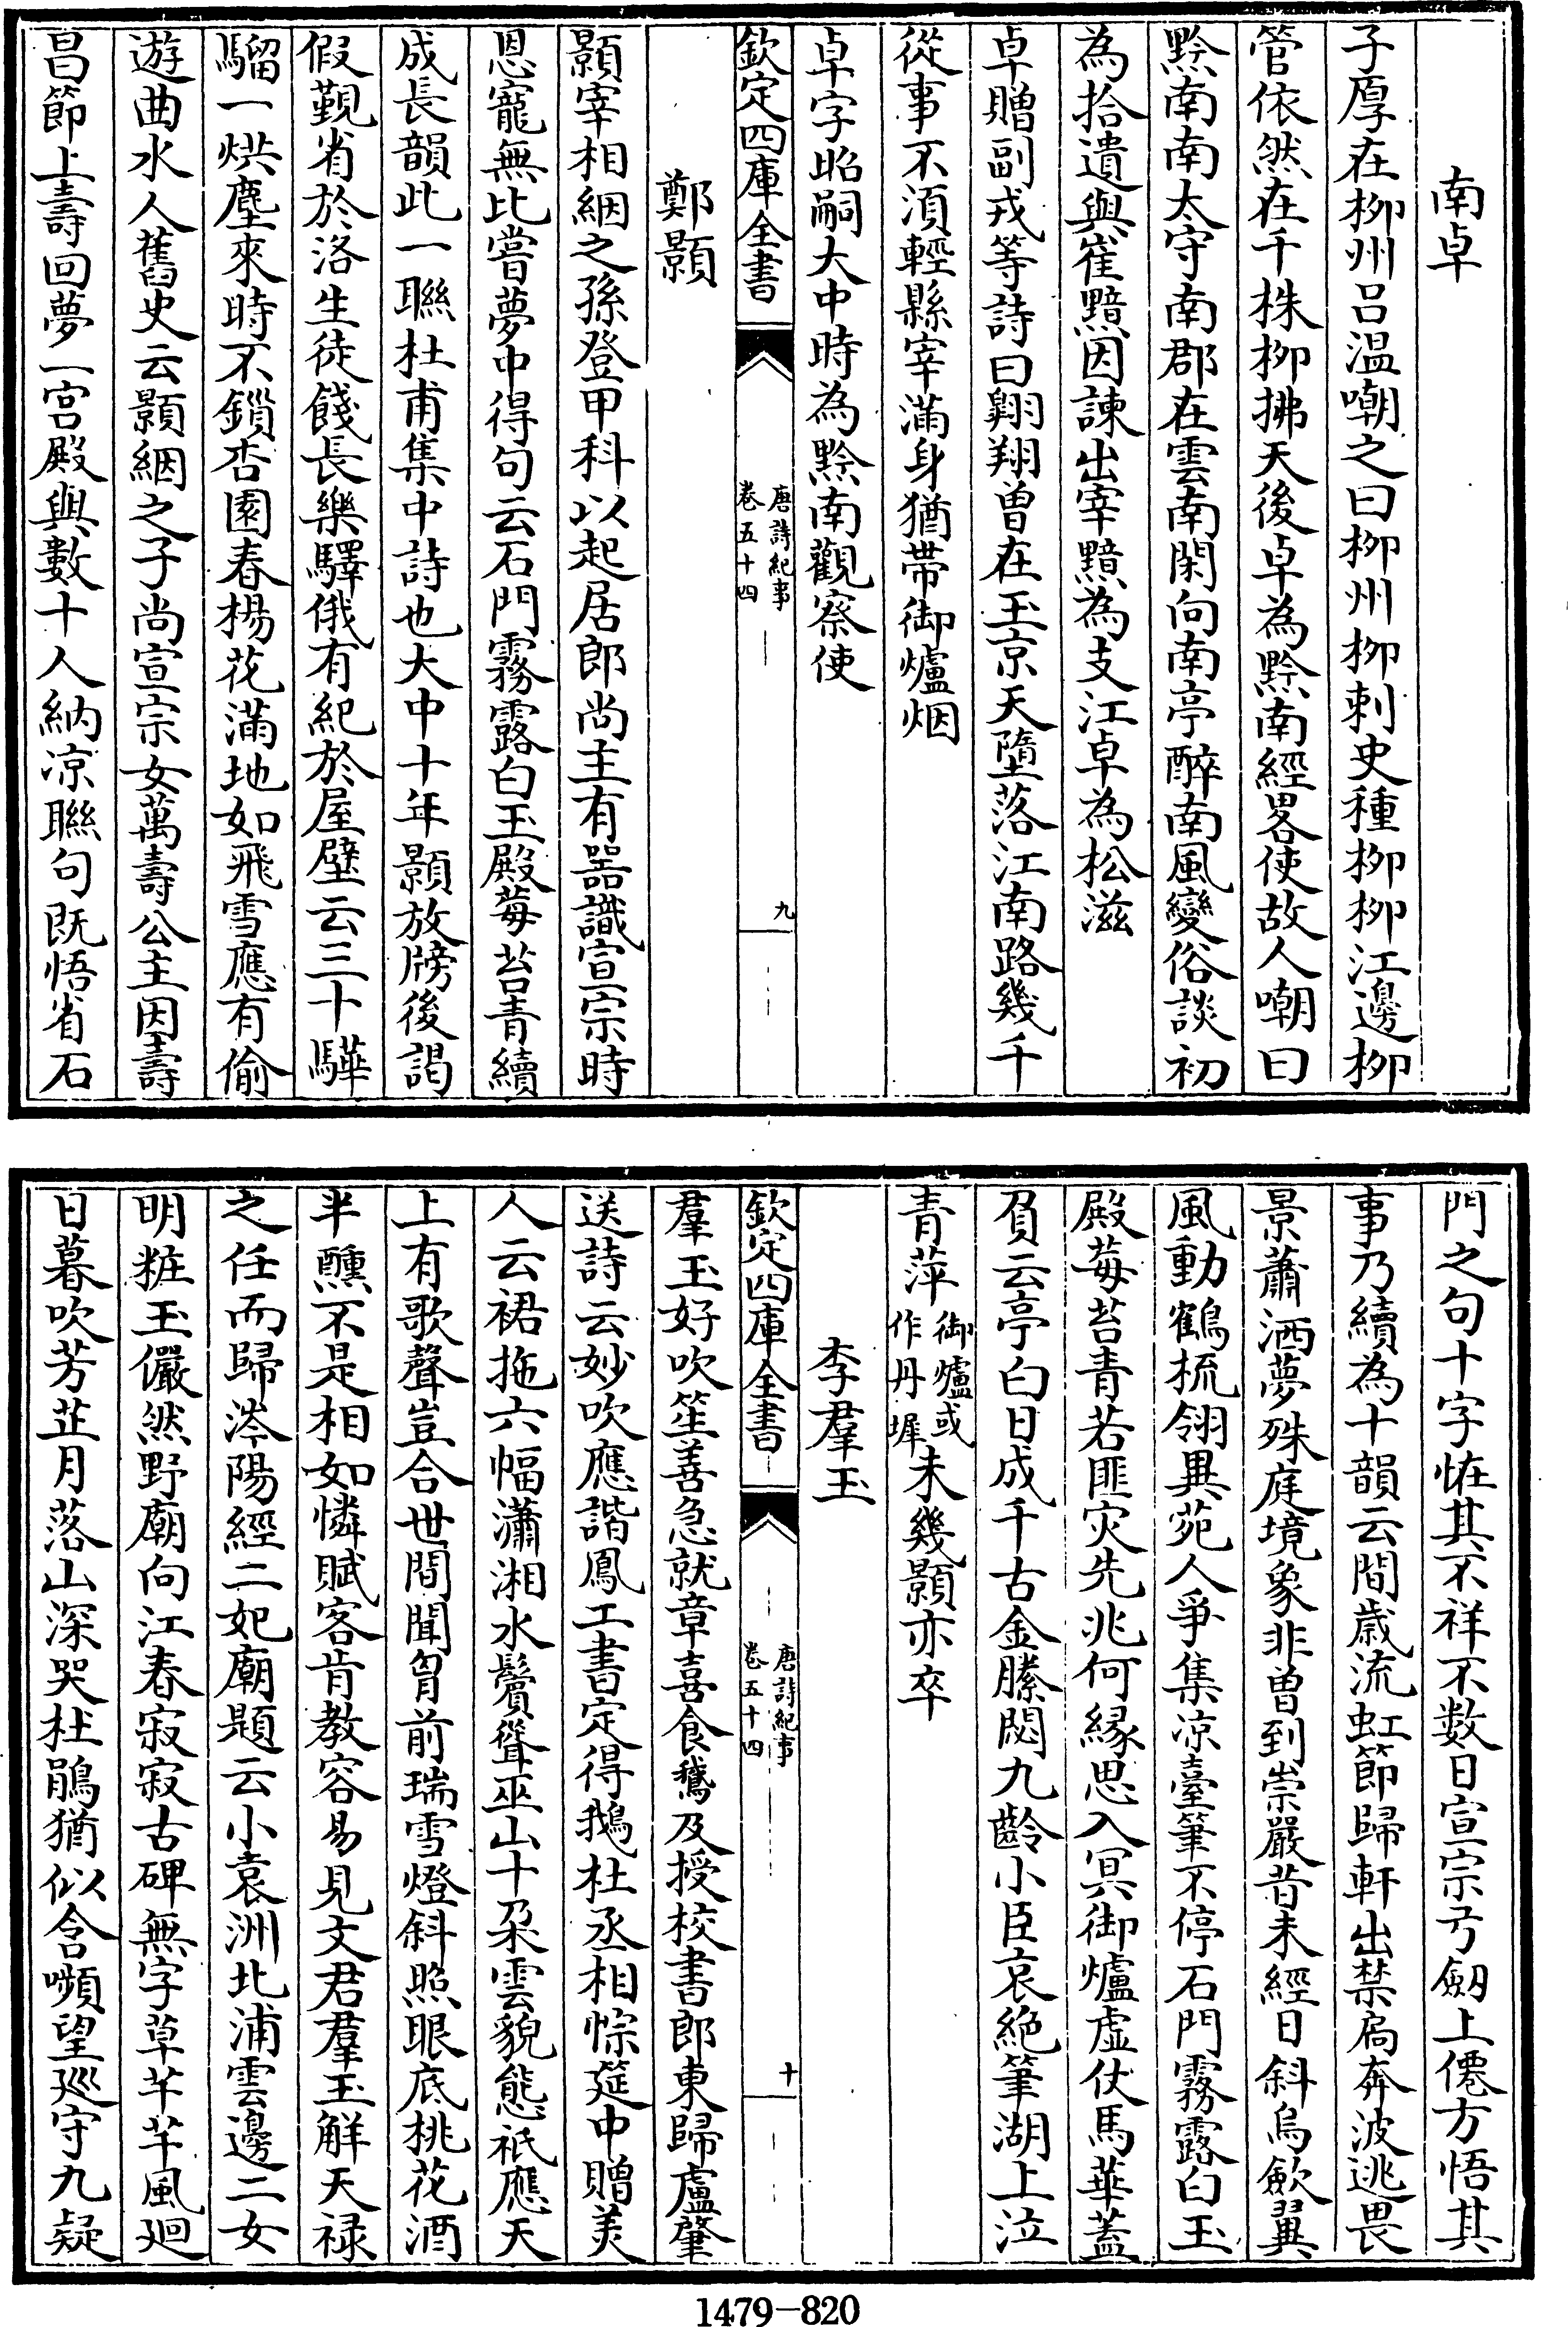 南卓
子厚在柳州吕温嘲之曰柳州柳刺史種柳柳江邊柳
管依然在千株柳拂天後卓為黔南經畧使故人嘲曰
黔南南太守南郡在雲南閑向南亭醉南風變俗談初
為拾遺與崔黯因諫出宰黯為支江卓為松滋
卓贈副戎等詩曰翺翔曽在玉京天墮落江南路幾千
從事不須輕縣宰滿身猶帶御爐烟
卓字昭嗣大中時為黔南觀察使
欽定四庫全書
唐詩紀事
卷五十四
九
鄭顥
顥宰相絪之孫登甲科以起居郎尚主有器識宣宗時
恩寵無比嘗夢中得句云石門霧露白玉殿莓苔青續
成長韻此一聯杜甫集中詩也大中十年顥放牓後謁
假覲省於洛生徒餞長樂驛俄有紀於屋壁云三十驊
騮一烘塵來時不鎖杏園春楊花滿地如飛雪應有偷
遊曲水人舊史云顥絪之子尚宣宗女萬壽公主因壽
昌節上壽回夢一宫殿與數十人納凉聯句既悟省石
門之句十字恠其不祥不數日宣宗弓劔上僊方悟其
事乃續為十韻云間歳流虹節歸軒出禁扄奔波逃畏
景蕭洒夢殊庭境象非曽到崇嚴昔未經日斜烏歛翼
風動鶴梳翎異苑人爭集凉臺筆不停石門霧露白玉
殿莓苔青若匪灾先兆何縁思入冥御爐虚仗馬華蓋
負云亭白日成千古金縢閟九齡小臣哀絶筆湖上泣
青萍御爐或作丹墀未幾顥亦卒
李羣玉
欽定四庫全書
唐詩紀事
卷五十四
十
羣玉好吹笙善急就章喜食鵞及授校書郎東歸盧肇
送詩云妙吹應諧鳳工書定得鵝杜丞相悰筵中贈美
人云裙拖六幅瀟湘水鬢聳巫山十朶雲貌態祗應天
上有歌聲豈合世間聞胷前瑞雪燈斜照眼底桃花酒
半醺不是相如憐賦客肯教容易見文君羣玉解天禄
之任而歸涔陽經二妃廟題云小袁洲北浦雲邊二女
明粧玉儼然野廟向江春寂寂古碑無字草芊芊風迴
日暮吹芳芷月落山深哭杜鵑猶似含嚬望廵守九疑
1479-820